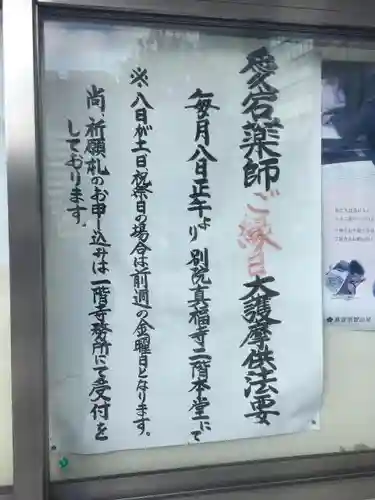 愛宕薬師ご縁日大護摩供法要
毎月八日正午より別院真福寺二階本堂にて
※八日が土日祝祭日の場合は前週の金曜日となります。
尚、祈願札のお申し込みは一階寺務所にて受付を
しております。